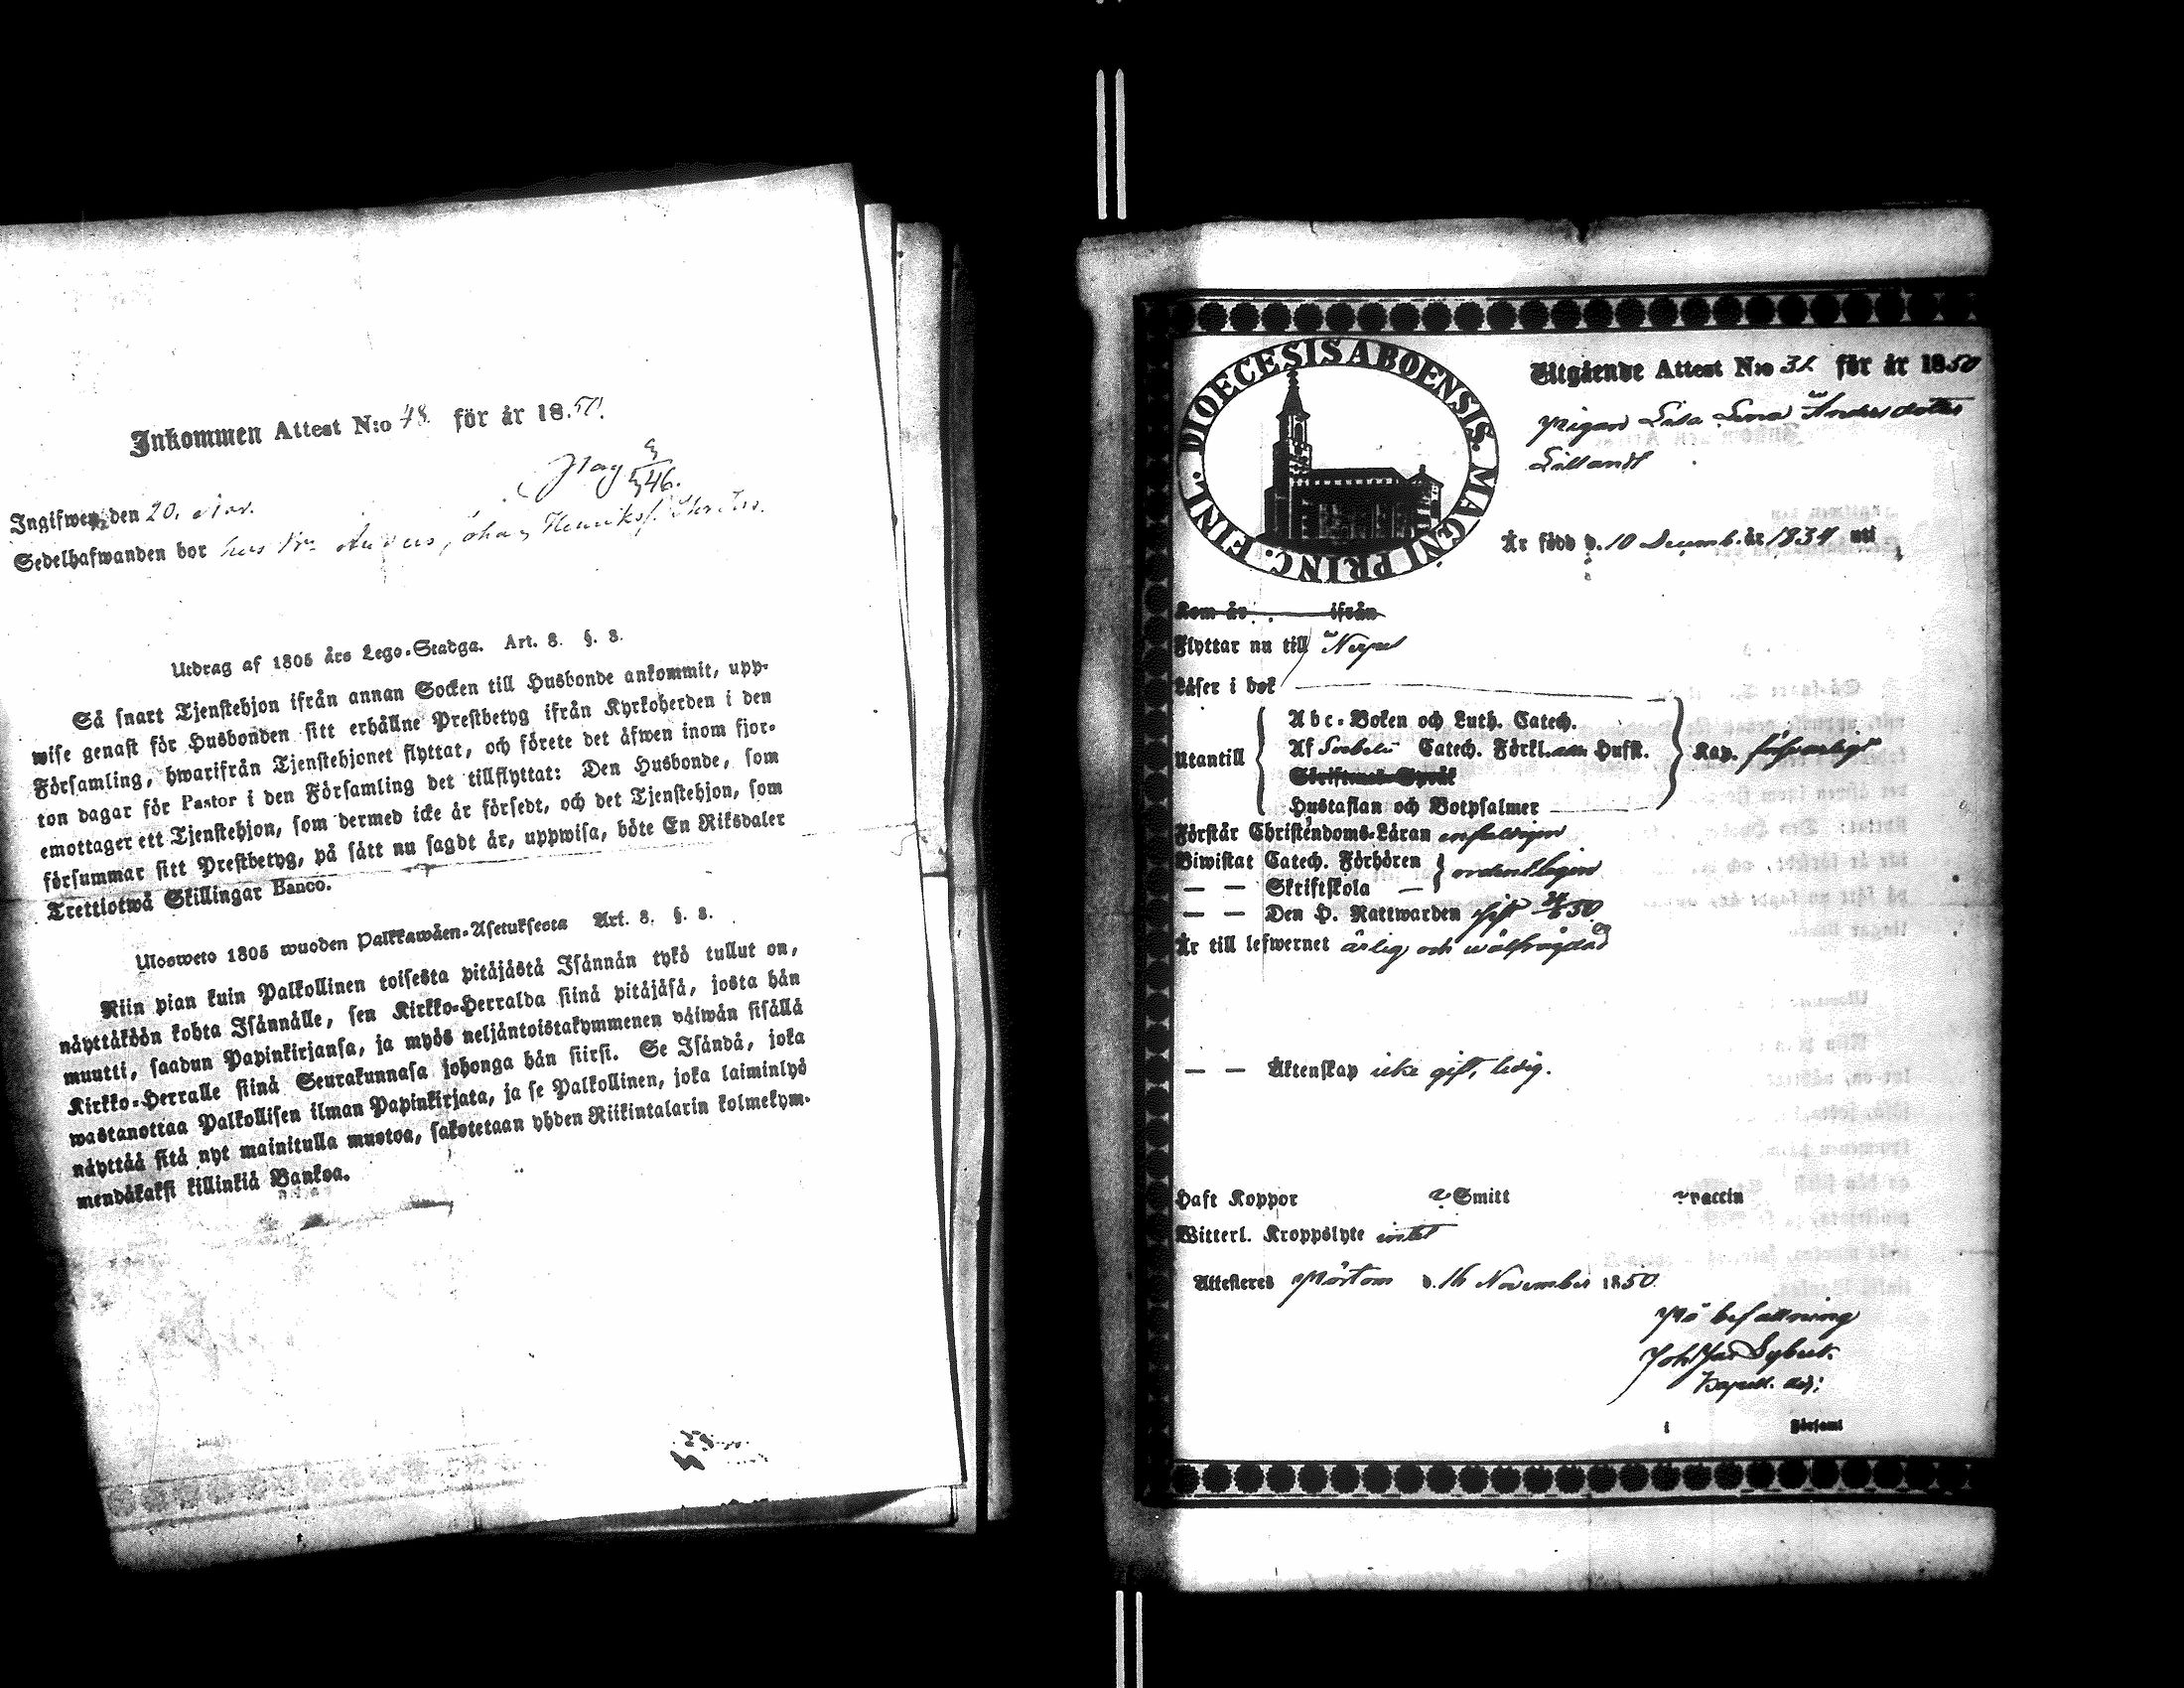 Inkommen Attest N:o 48 för år 1850.
Ingifwen den 20. Nov.
Sedelhafwanden bor hos
Utdrag af 1805 års Lego-Stadga. Art. 8. §. 8.
Så snart Tjenstehjon ifrån annan Socken till Husbonde ankommit, upp-
wise genast för Husbonden sitt erhållne Prestbetyg ifrån Kyrkoherden i den
Församling, hwarifrån Tjenstehjonet flyttat, och förete det äfwen inom fjor-
ton dagar för Pastor i den Församling det tillflyttat: Den Husbonde, som
emottager ett Tjenstehjon, som dermed icke är försedt, och det Tjenstehjon, som
försummar sitt Prestbetyg, på sätt nu sagdt är, uppwisa, böte En Riksdaler
Trettiotwå Skillingar Banco.
Ulosweto 1805 wuoden Palkkawäen-Asetuksesta Art. 8. §. 8.
Niin pian kuin Palkollinen toisesta pitäjästä Isännän tykö tullut on,
näyttäköön kohta Isännälle, sen Kirkko-Herralda siinä pitäjäsä, josta hän
muutti, saadun Papinkirjansa, ja myös neljäntoistakymmenen päiwän sisällä
Kirkko-Herralle siinä Seurakunnasa johonga hän siirsi. Se Isändä, joka
wastanottaa Palkollisen ilman Papinkirjata, ja se Palkollinen, joka laiminlyö
näyttää sitä nyt mainitulla muotoa, sakotetaan yhden Riikintalarin kolmekym-
mendäkaksi killinkiä Bankoa.
DIOECESIS ABOENSIS. MAGNI PRINC. FINL.
Utgående Attest N:o 31 för år 1850
Pigan Lisa Lena Andersdotter
Lilland
Är född d. 10 Decemb. år 1834 uti
Kom år ifrån
Flyttar nu till Nerpes
Läser i bok
Utantill
Abc-Boken och Luth. Catech.
Af Svebelii Catech. Förkl. Husfl.
Skriftens Språk
Hustaflan och Botpsalmer
Kap. försvarligt
Förstår Christendoms-Läran enfaldigen
Biwistat Catech. Förhören
— — Skriftskola — ordentligen
— — Den H. Nattwarden sist 50
Är till lefwernet ärlig och wälfrägdad
— — Äktenskap icke gift, ledig.
Haft Koppor Smitt vaccin
Witterl. Kroppslyte intet
Attesteres Pörtom d. 16 November 1850
På befallning
Kapell. Adj:
i Församl